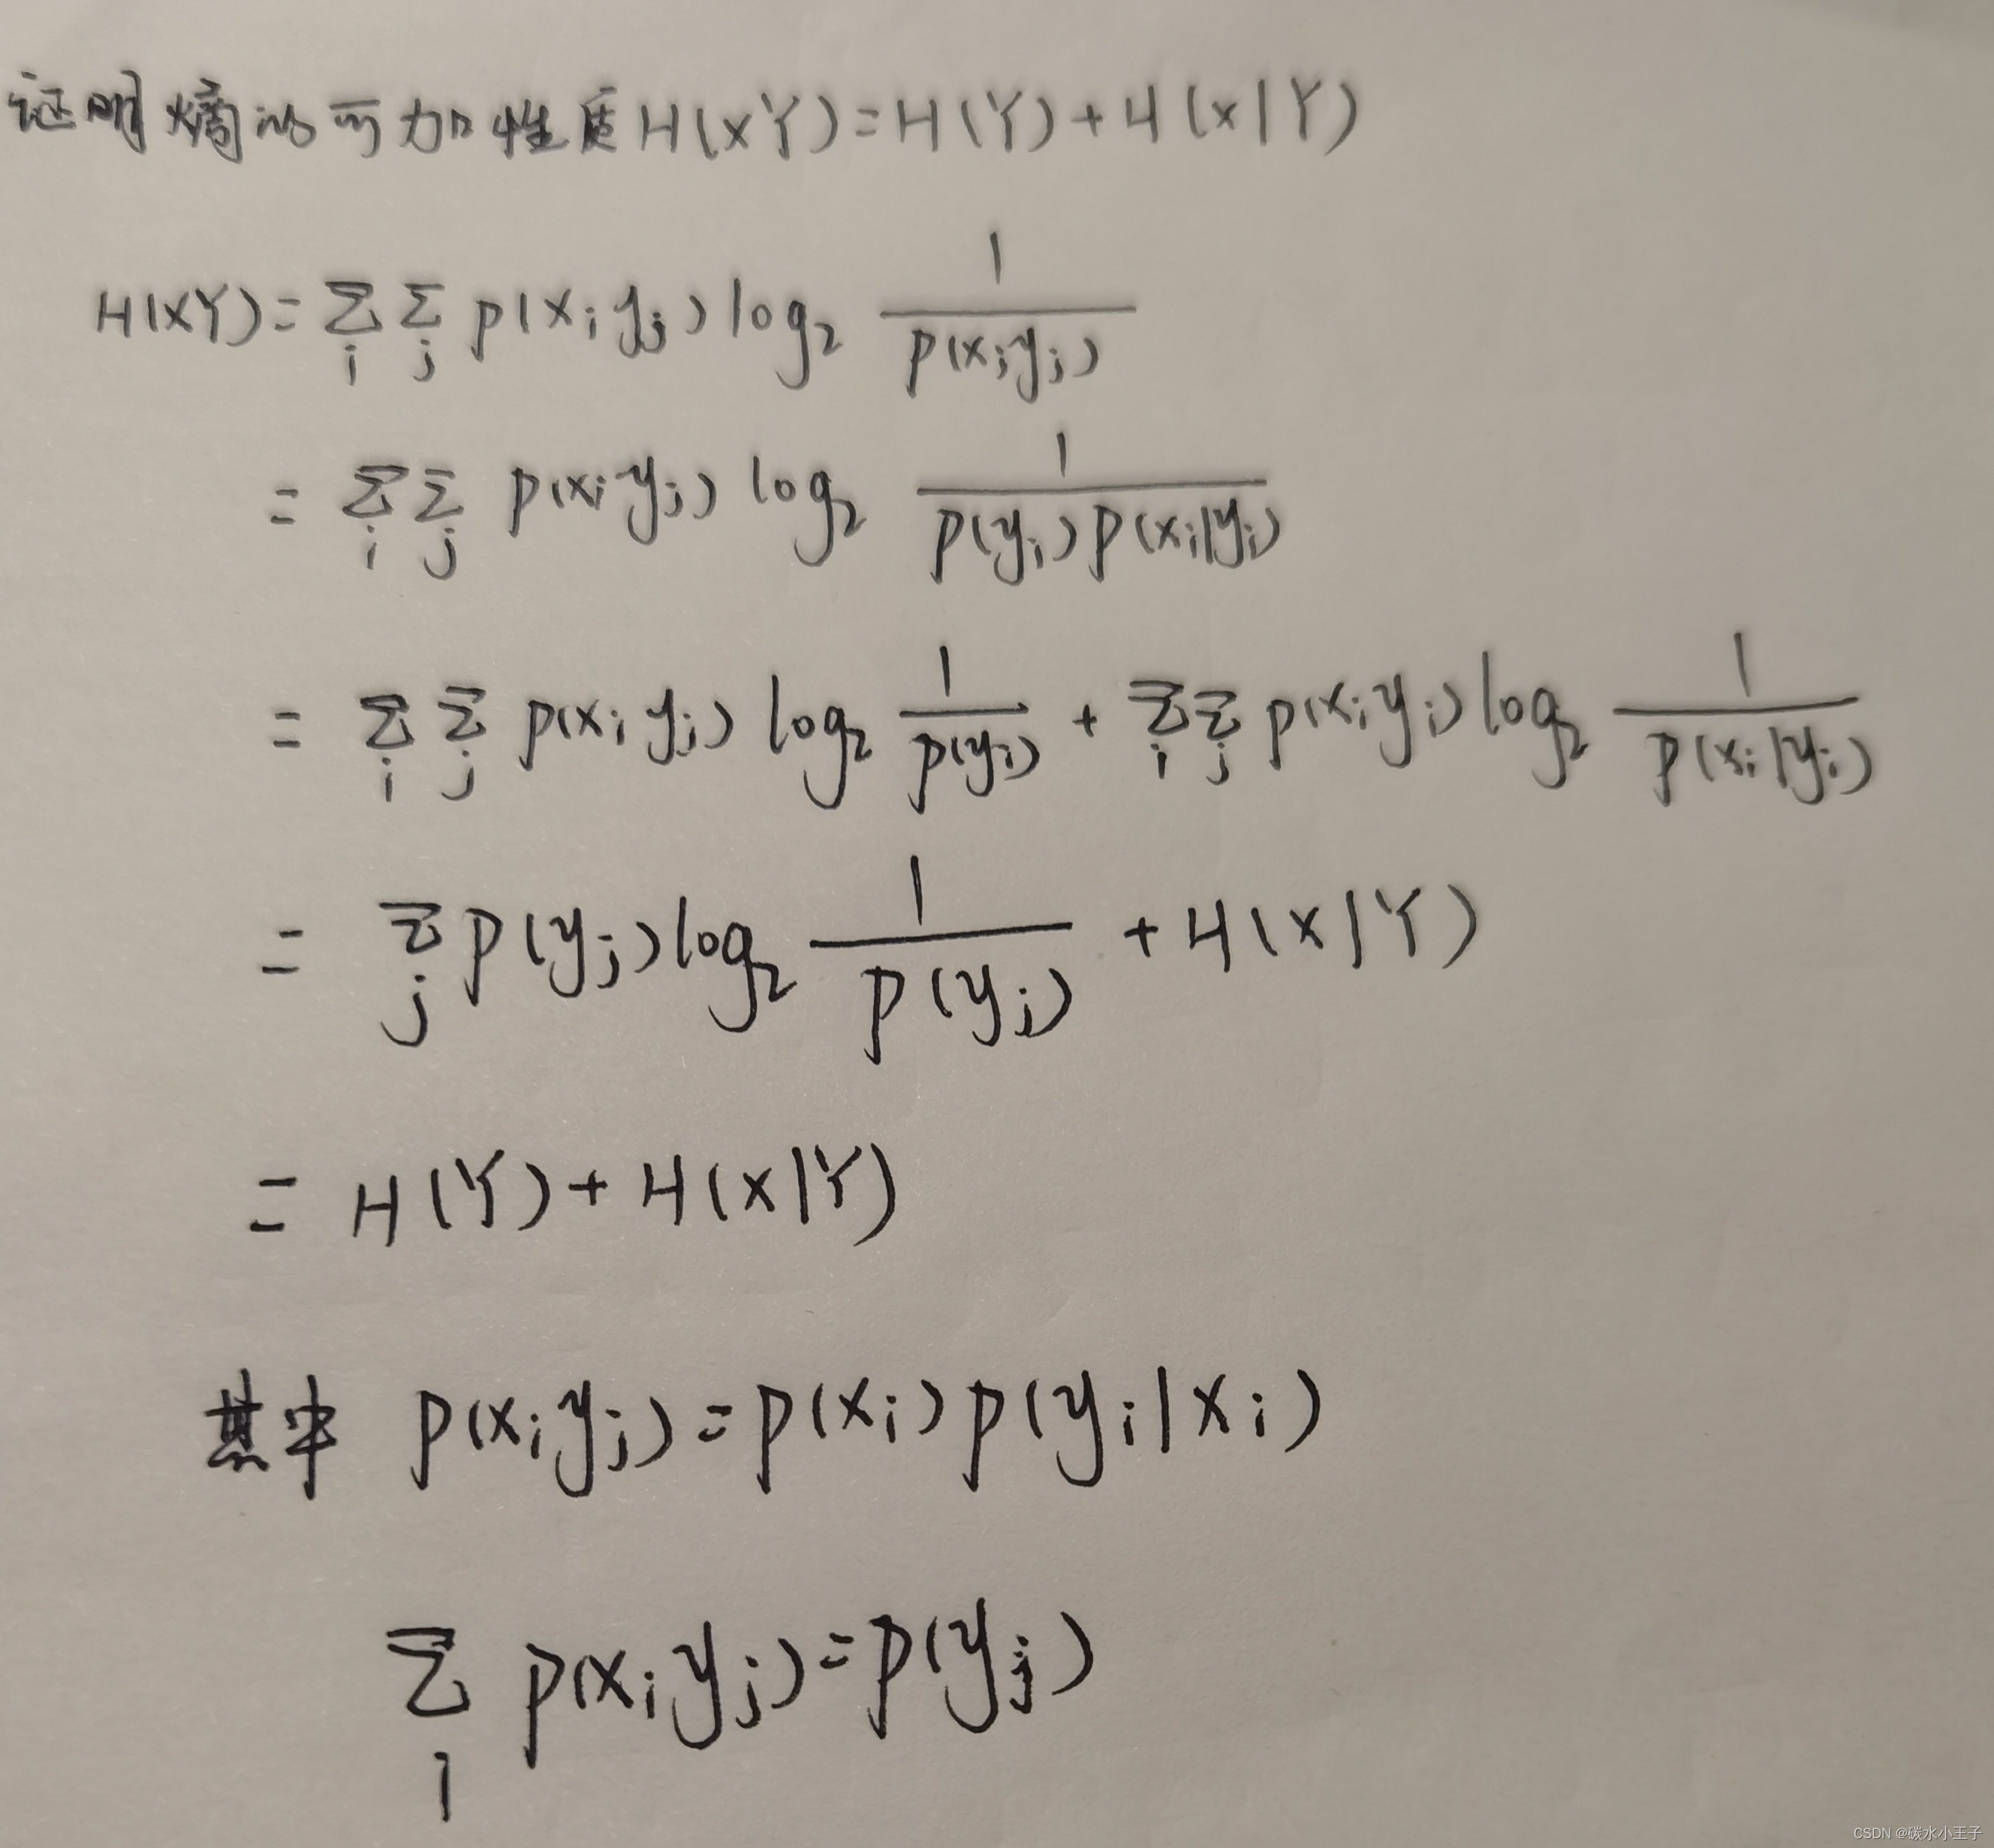 证明熵的可加性质H(XY)=H(Y)+H(X|Y)
H(XY)=∑_i ∑_j p(x_i y_j) log_2 1/p(x_i y_j)
=∑_i ∑_j p(x_i y_j) log_2 1/(p(y_i)p(x_i|y_i))
=∑_i ∑_j p(x_i y_j) log_2 1/p(y_i) + ∑_i ∑_j p(x_i y_i) log_2 1/p(x_i|y_i)
=∑_j p(y_j) log_2 1/p(y_j) + H(X|Y)
=H(Y)+H(X|Y)
其中 p(x_i y_j)=p(x_i)p(y_i|x_i)
∑_i p(x_i y_j)=p(y_j)
CSDN @碳水小王子